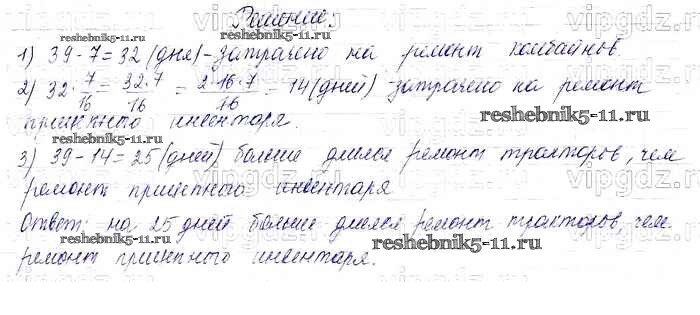 Решение:
1) 39-7=32 (дня) - затрачено на ремонт комбайнов.
2) 32·7/16 = 32·7/16 = 2·16·7/16 = 14 (дней) - затрачено на ремонт
прицепного инвентаря.
3) 39-14=25 (дней) больше длился ремонт тракторов, чем
ремонт прицепного инвентаря
Ответ: на 25 дней больше длился ремонт тракторов, чем
ремонт прицепного инвентаря.
vipgdz.ru
reshebnik5-11.ru
reshebnik5-11.ru
reshebnik5-11.ru
reshebnik5-11.ru
reshebnik5-11.ru